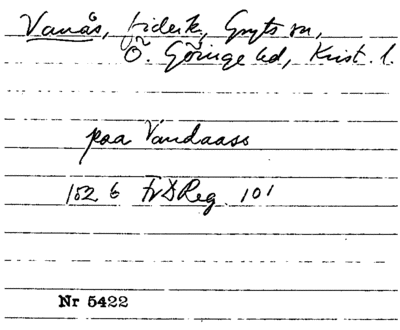 Vanås, fideik., Gryts sn,
Ö. Göinge hd, Krist. l.
paa Vandaass
1526 FrDReg. 101
Nr 5422